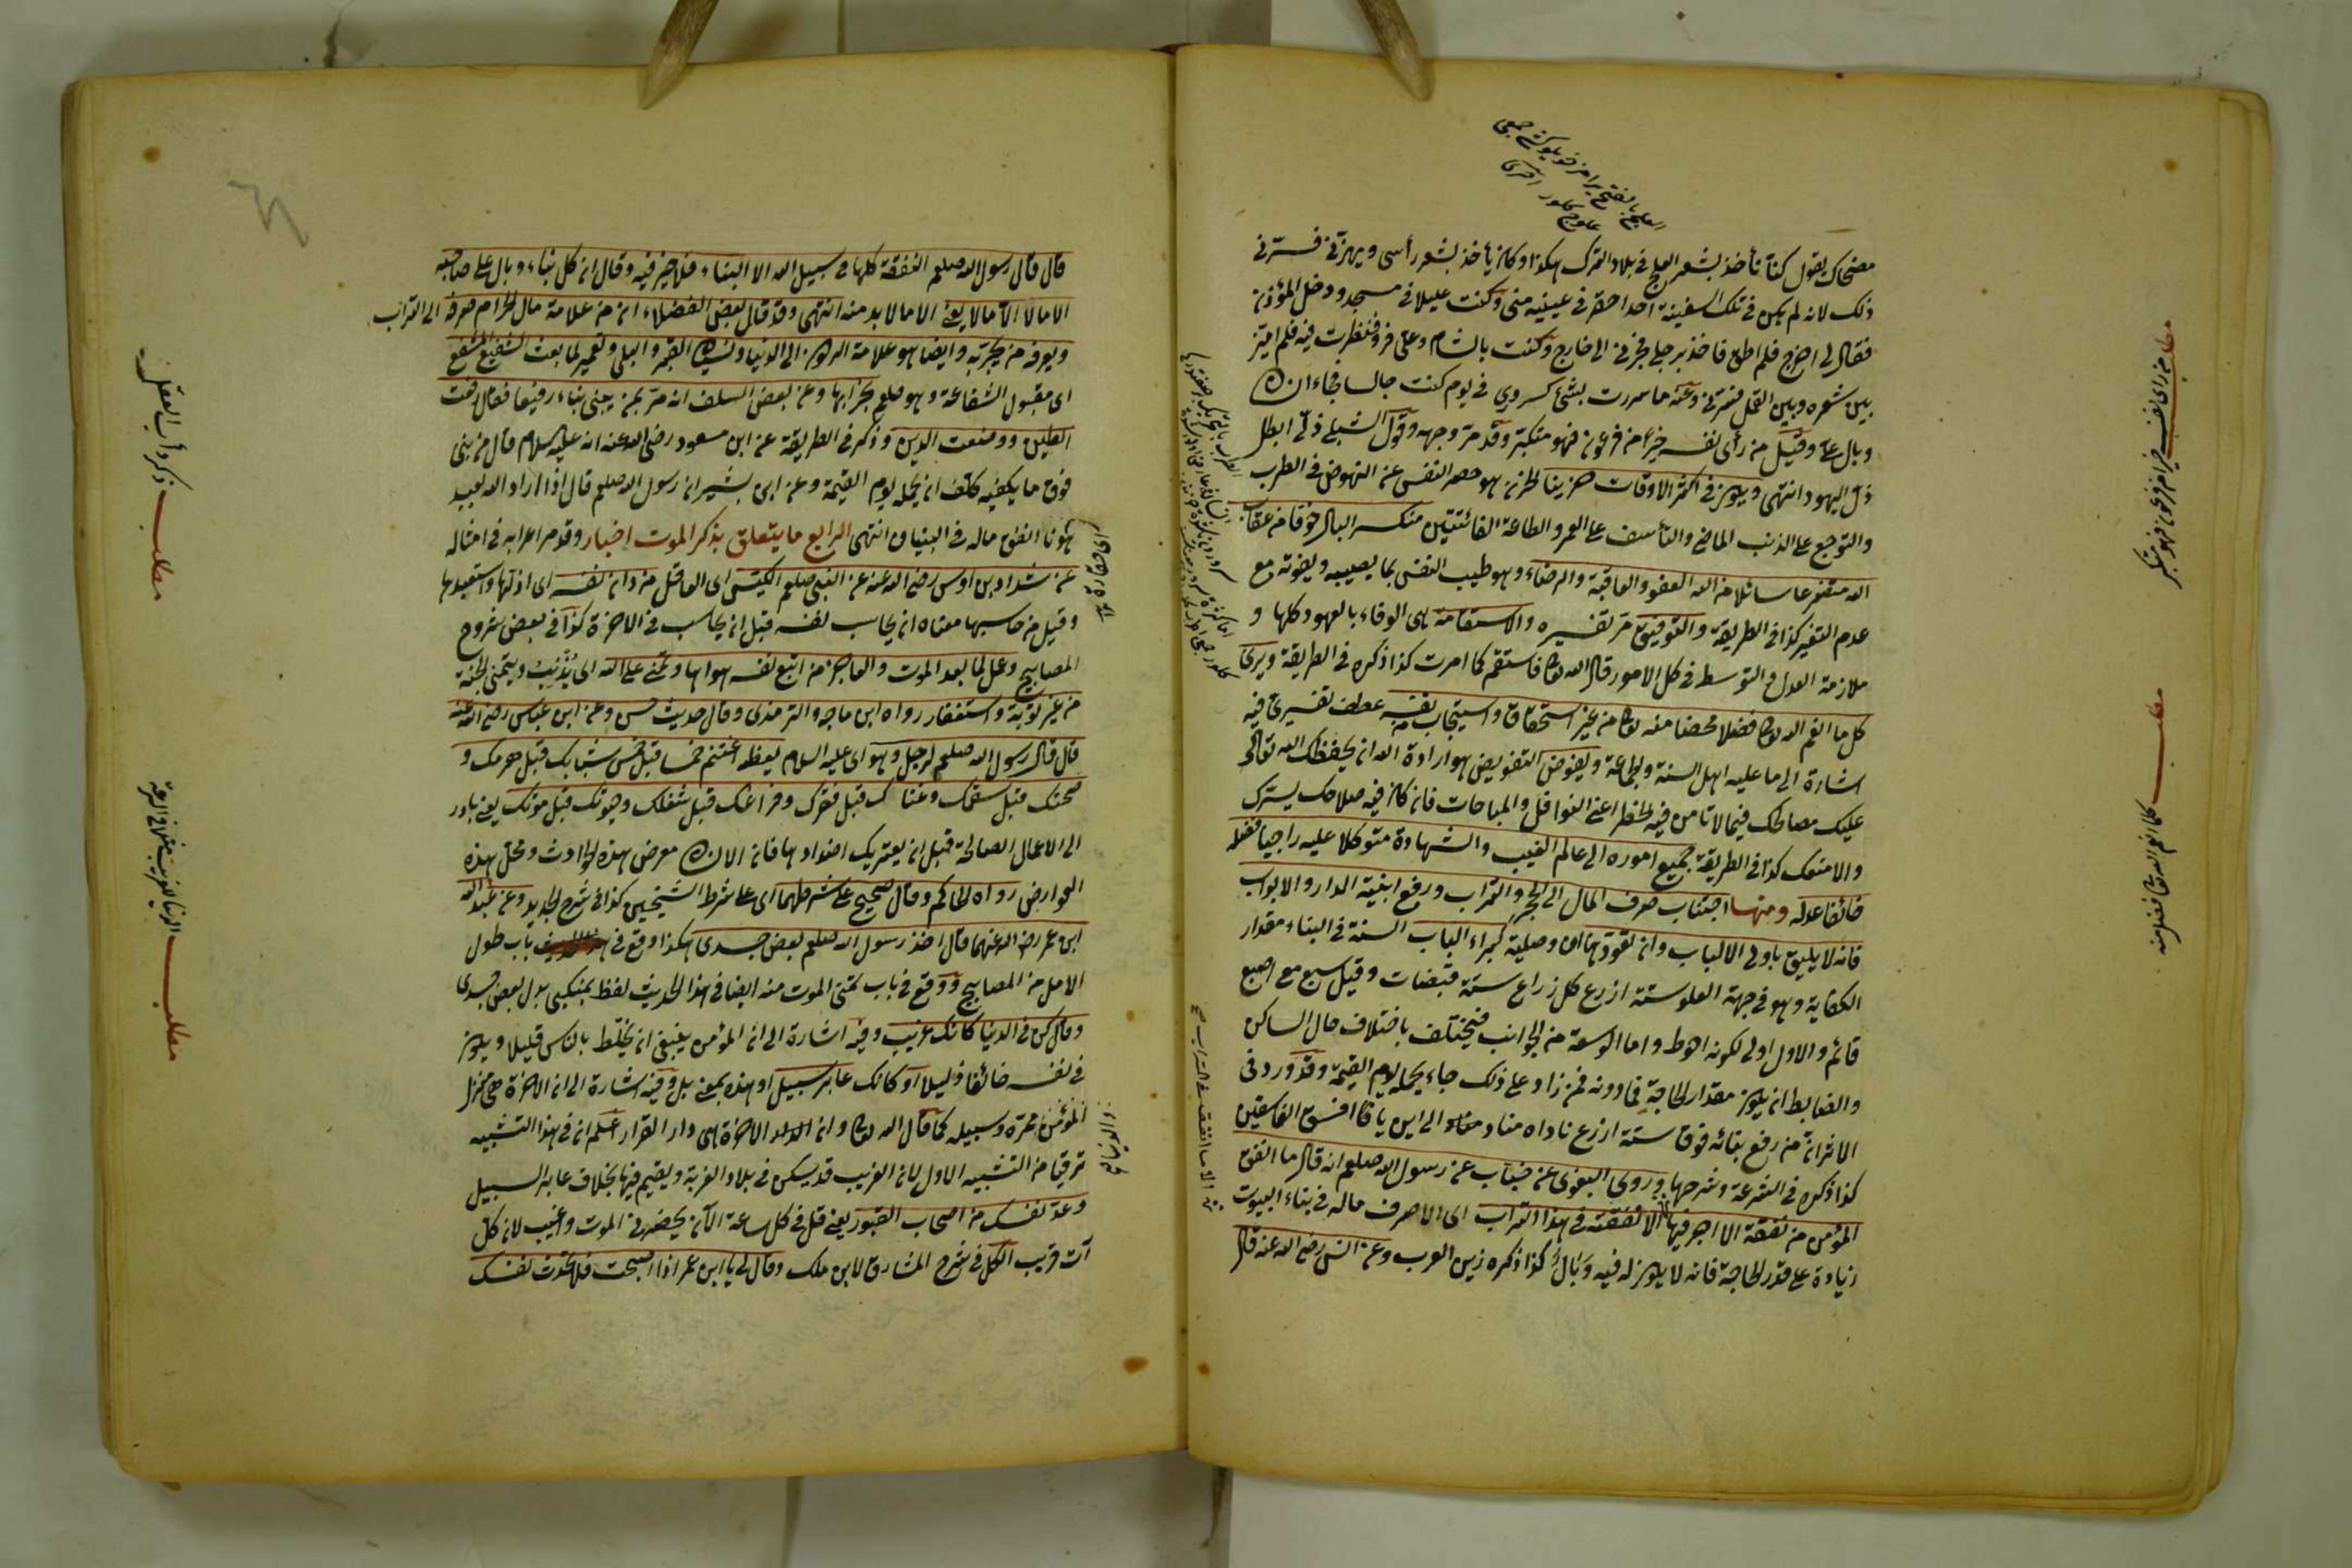 مضحاك يقول كنا نأخذ بشعر العلج في بلاد الترك هكذا وكان يأخذ بشعر رأسي ويهزني فسرني
ذلك لانه لم يكن في تلك السفينة احد احقر في عينيه مني وكنت عليلا في مسجد ودخل المؤذن
فقال لي اخرج فلم اطق فاخذ برجلي فجرني الى خارج وكنت بالشام وعلي فرو فنظرت فيه فلم اميز
بين شعره وبين القمل فسرني وعنه ما سررت بشئ كسروري في يوم كنت جالسا فجاء انسان
وبال علي وقيل من رأى نفسه خيرا من فرعون فهو متكبر وقد مر وجهه وقول الشبلي ذلي ابطل
ذل اليهود انتهى ويكون في اكثر الاوقات حزينا الحزن هو حصر النفس عن النهوض في الطرب
والتوجع على الذنب الماضي والتأسف على العمر والطاعة الفائتتين منكسر البال خوفا من عقاب
الله متضرعا سائلا من الله العفو والعافية والرضاء وهو طيب النفس بما يصيبه ويفوته مع
عدم التغير كذا في الطريقة والتوفيق مر تفسيره والاستقامة هي الوفاء بالعهود كلها و
ملازمة العدل والتوسط في كل الامور قال الله تعالى فاستقم كما امرت كذا ذكره في الطريقة ويرى
كل ما انعم الله تعالى فضلا محضا منه تعالى من غير استحقاق واستيجاب نفسه عطف تفسيري فيه
اشارة الى ما عليه اهل السنة والجماعة ويفوض التفويض هو ارادة الله ان يحفظك الله تعالى
عليك مصالحك فيما لا تأمن فيه الخطر اعني النوافل والمباحات فان كان فيه صلاحك يسرك
والا منعك كذا في الطريقة جميع اموره الى عالم الغيب والشهادة متوكلا عليه راجيا فضله
خائفا عدله ومنها اجتناب صرف المال الى الحجر والتراب ورفع ابنية الدار والابواب
فانه لا يليق باولي الالباب وان تفوق بها وصلية كبراء الباب السنة في البناء مقدار
الكفاية وهو في جهة العلو ستة اذرع كل ذراع ستة قبضات وقيل سبع مع اصبع
قائم والاول اولى لكونه احوط واما الوسعة من الجوانب فيختلف باختلاف حال الساكن
والضابط ان يكون مقدار الحاجة فما دونه فمن زاد على ذلك جاء يحمله يوم القيمة وقد ورد في
الاثر انه من رفع بنائه فوق ستة اذرع ناداه مناد الى اين يا افسق الفاسقين
كذا ذكره في الشرعة وشرحها وروى البغوي عن خباب عن رسول الله صلعم انه قال ما انفق
المؤمن من نفقة الا اجر فيها الا نفقته في هذا التراب اي الا صرف ماله في بناء البيوت
زيادة على قدر الحاجة فانه لا يكون له فيه وبال كذا ذكره زين العرب وعن انس رضي الله عنه قال
مطلب من رأى نفسه خيرا من فرعون فهو متكبر
مطلب كل ما انعم الله تعالى فضلا منه
قال قال رسول الله صلعم النفقة كلها في سبيل الله الا البناء فلا خير فيه وقال ان كل بناء وبال على صاحبه
الا ما لا الا ما لا يعني الا ما لا بد منه انتهى وقد قال بعض الفضلاء ان من علامة مال الحرام صرفه الى التراب
ويعرفه من يجربه وايضا هو علامة الركون الى الدنيا ونسيان القبر والبلى وتعمير لما بعث الشفيع المشفع
اي مقبول الشفاعة وهو صلعم بخرابها وعن بعض السلف انه مر بمن يبني بناء رفيعا فقال رفعت
الطين ووضعت الدين وذكر في الطريقة عن ابن مسعود رضي الله عنه انه عليه السلام قال من بنى
فوق ما يكفيه كلف ان يحمله يوم القيمة وعن ابي بشير ان رسول الله صلعم قال اذا اراد الله بعبد
هوانا انفق ماله في البنيان انتهى الرابع ما يتعلق بذكر الموت اخبار وقد مر اعرابه في امثاله
عن شداد بن اوس رضي الله عنه عن النبي صلعم الكيس اي العاقل من دان نفسه اي اذلها واستعبدها
وقيل من حاسبها معناه ان يحاسب نفسه قبل ان يحاسب في الاخرة كذا في بعض شروح
المصابيح وعمل لما بعد الموت والعاجز من اتبع نفسه هواها وتمنى على الله اي يذنب ويتمنى الجنة
من غير توبة واستغفار رواه ابن ماجه والترمذي وقال حديث حسن وعن ابن عباس رضي الله عنه
قال قال رسول الله صلعم لرجل وهو اي عليه السلام يعظه اغتنم خمسا قبل خمس شبابك قبل هرمك و
صحتك قبل سقمك وغناك قبل فقرك وفراغك قبل شغلك وحيوتك قبل موتك يعني بادر
الى الاعمال الصالحة قبل ان يعتريك اضدادها فان الانسان معرض لهذه الحوادث ومحل هذه
العوارض رواه الحاكم وقال صحيح على شرطهما اي على شرط الشيخين كذا في شرح الجديد وعن عبد الله
ابن عمر رضي الله عنهما قال اخذ رسول الله صلعم ببعض جسدي هكذا وقع في باب طول
الامل من المصابيح ووقع في باب تمني الموت منه ايضا في هذا الحديث لفظ بمنكبي بدل ببعض جسدي
وقال كن في الدنيا كانك غريب وفيه اشارة الى ان المؤمن ينبغي ان يختلط بالناس قليلا ويكون
في نفسه خائفا ذليلا او كانك عابر سبيل او هذه بمعنى بل وفيه اشارة الى ان الاخرة هي منزل
المؤمن ممره وسبيله كما قال الله تعالى وان الدار الاخرة هي دار القرار اعلم ان في هذا التشبيه
ترقيا من التشبيه الاول لان الغريب قد يسكن في بلاد الغربة ويقيم فيها بخلاف عابر السبيل
وعد نفسك من اصحاب القبور يعني قل في كل ساعة الآن يحضرني الموت واغيب لان كل
آت قريب الكل في شرح المشارق لابن ملك وقال لي يا ابن عمر اذا اصبحت فلا تحدث نفسك
اي حقارة
والدنيا
مطلب ذكر دأب العقل
مطلب